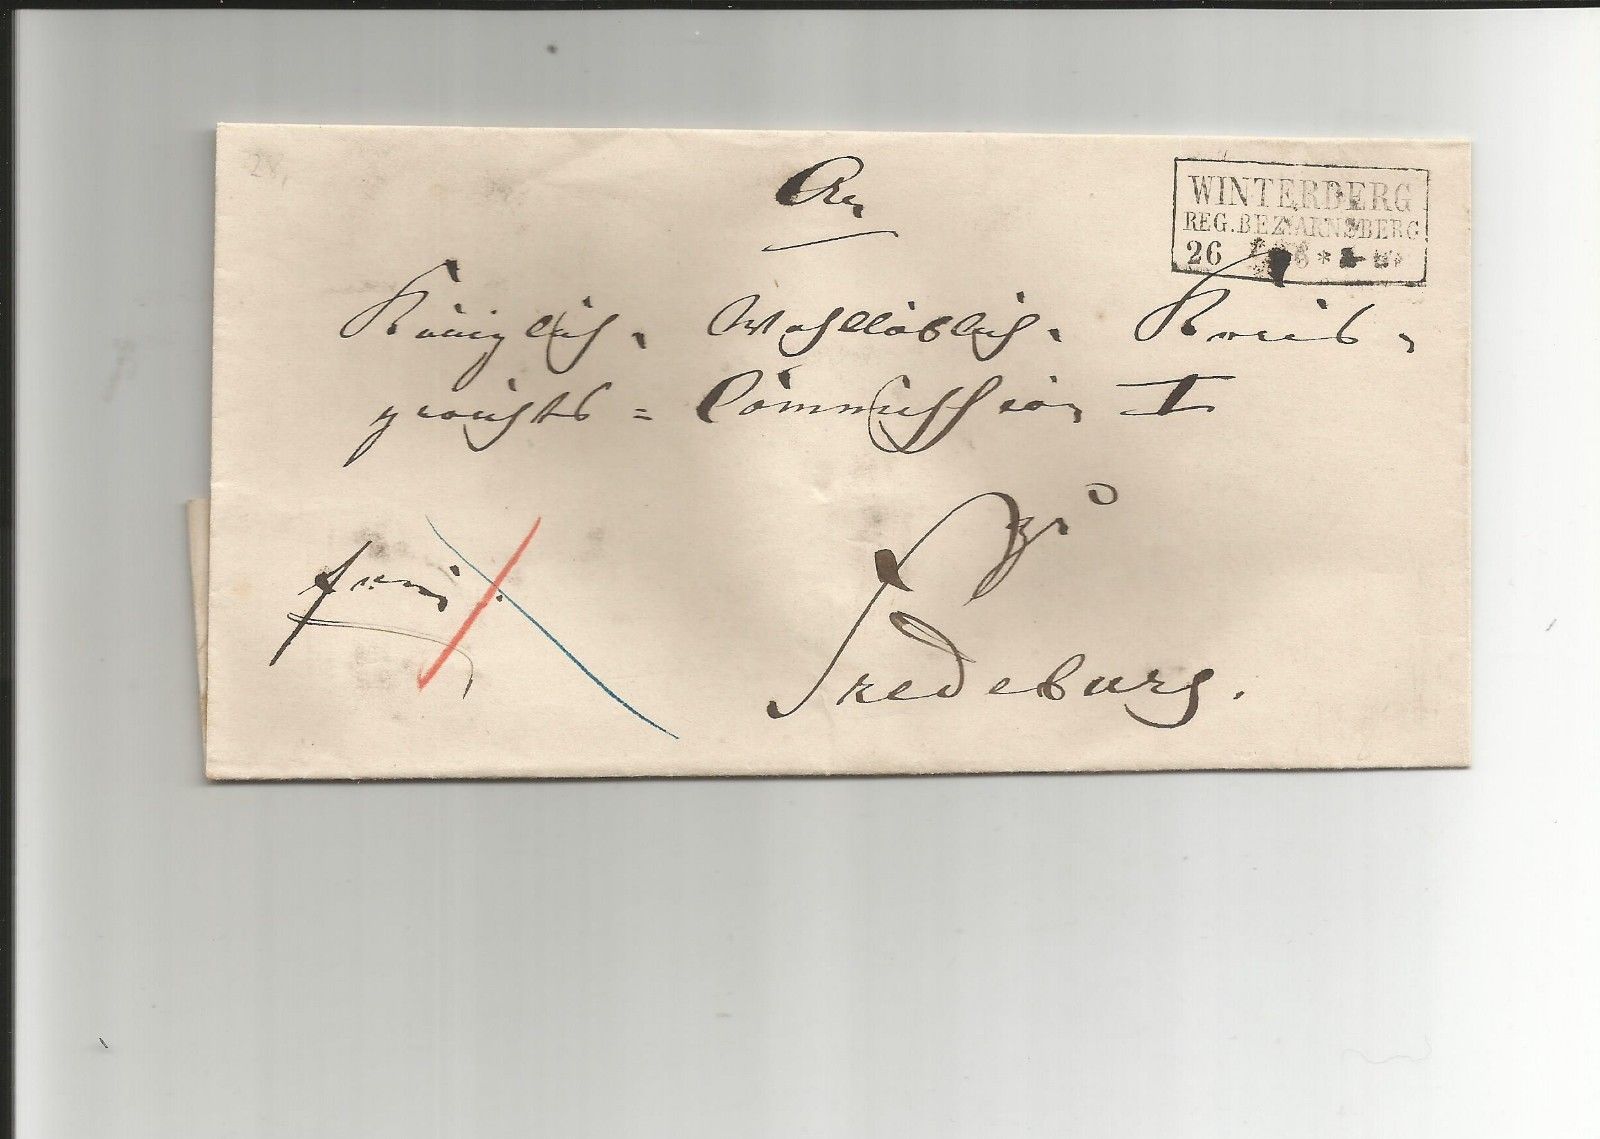 An
WINTERBERG
REG. BEZ. ARNSBERG
26
Königlich. Wohllöblich. Kreis-
gerichts = Commission I
zu
frei.
Fredeburg.